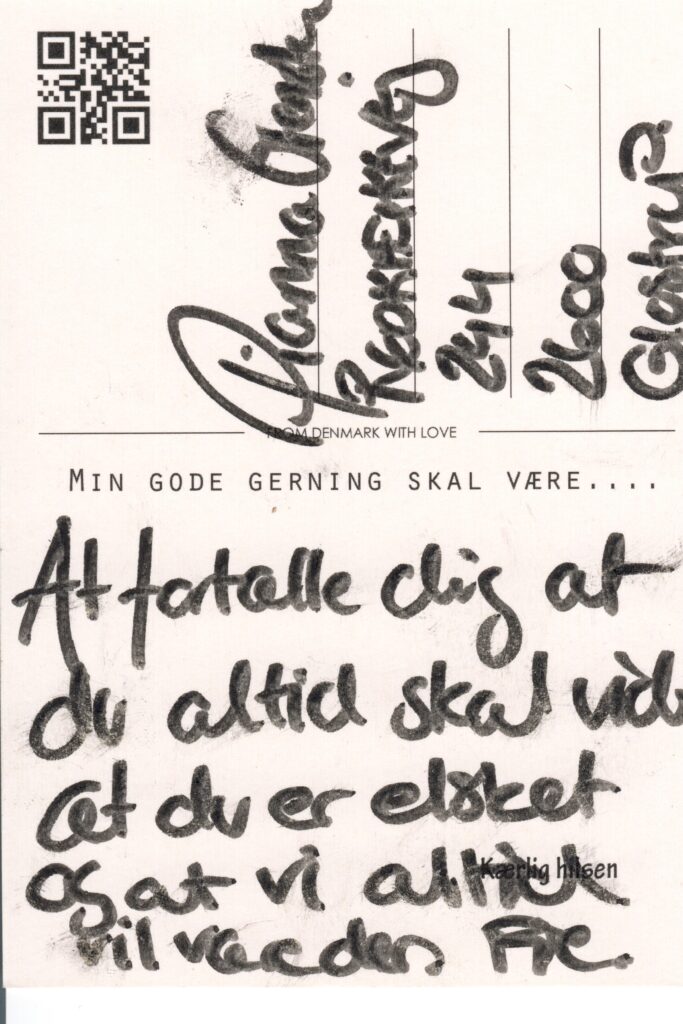 Dianna
244
2600
Glostrup
FROM DENMARK WITH LOVE
MIN GODE GERNING SKAL VÆRE....
At fortælle dig at
du altid skal vide
at du er elsket
og at vi altid
Kærlig hilsen
vil være der.